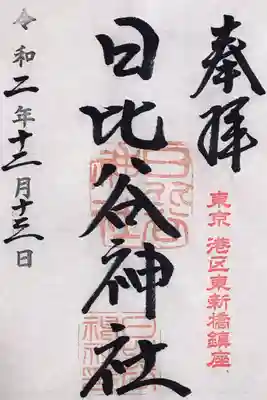 奉拝
東京 港区東新橋鎮座
日比谷神社
令和二年十二月十三日